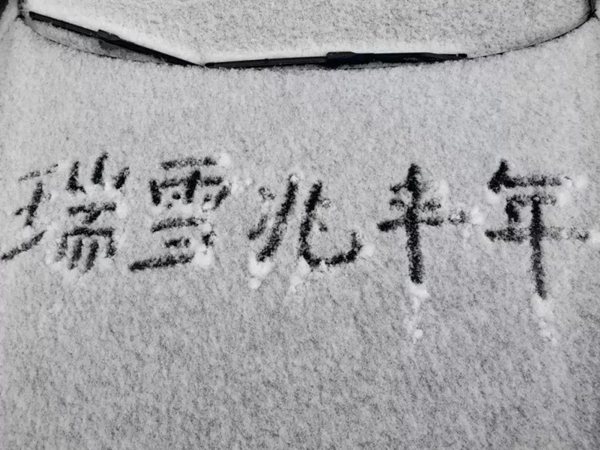 瑞雪兆丰年